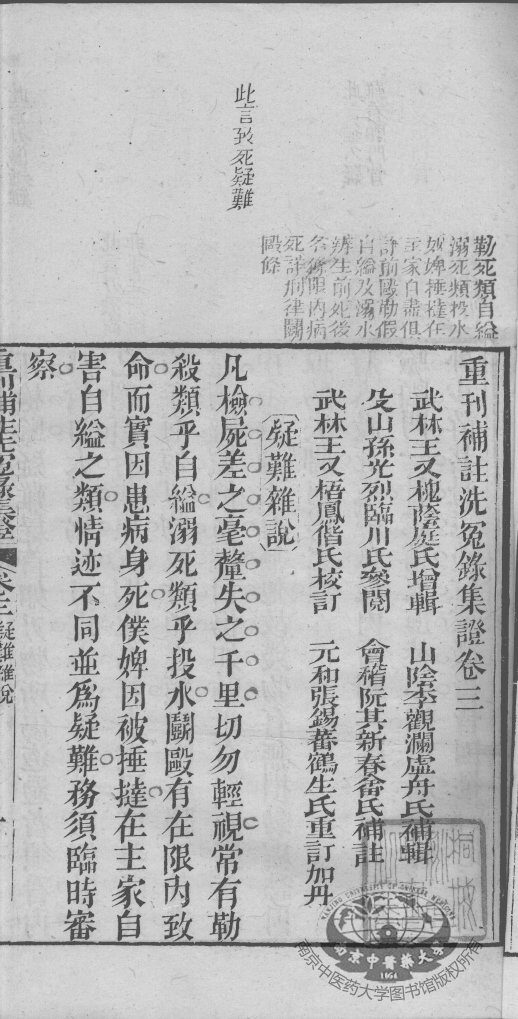 此言致死疑難
勒死類自縊
溺死類投水
奴婢捶撻在
主家自盡俱
詳前毆勒假
自縊及溺水
辨生前死後
各條限内病
死詳刑律鬭
毆條
重刊補註洗冤錄集證卷三
武林王又槐蔭庭氏增輯　山陰李觀瀾虛舟氏補輯
山孫光烈臨川氏參閱　會稽阮其新春畬氏補註
武林王又梧鳳偕氏校訂　元和張錫蕃鶴生氏重訂加丹
疑難雜說
凡檢屍差之毫釐失之千里切勿輕視常有勒
殺類乎自縊溺死類乎投水鬭毆有在限内致
命而實因患病身死僕婢因被捶撻在主家自
害自縊之類情迹不同並爲疑難務須臨時審
察
重刊補註洗冤錄集證　卷三　疑難雜說　一
南京中醫藥大學
NANJING UNIVERSITY OF CHINESE MEDICINE
1954
南京中医药大学图书馆版权所有